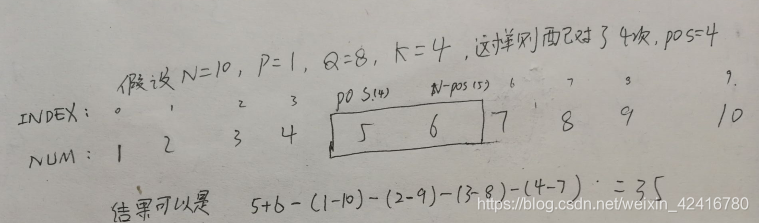 假设 N=10, P=1, Q=8, K=4, 这样则配对了4次, pos=4
INDEX: 0 1 2 3 pos(4) N-pos(5) 6 7 8 9.
NUM: 1 2 3 4 5 6 7 8 9 10
结果可以是 5+6-(1-10)-(2-9)-(3-8)-(4-7) =35
https://blog.csdn.net/weixin_42416780